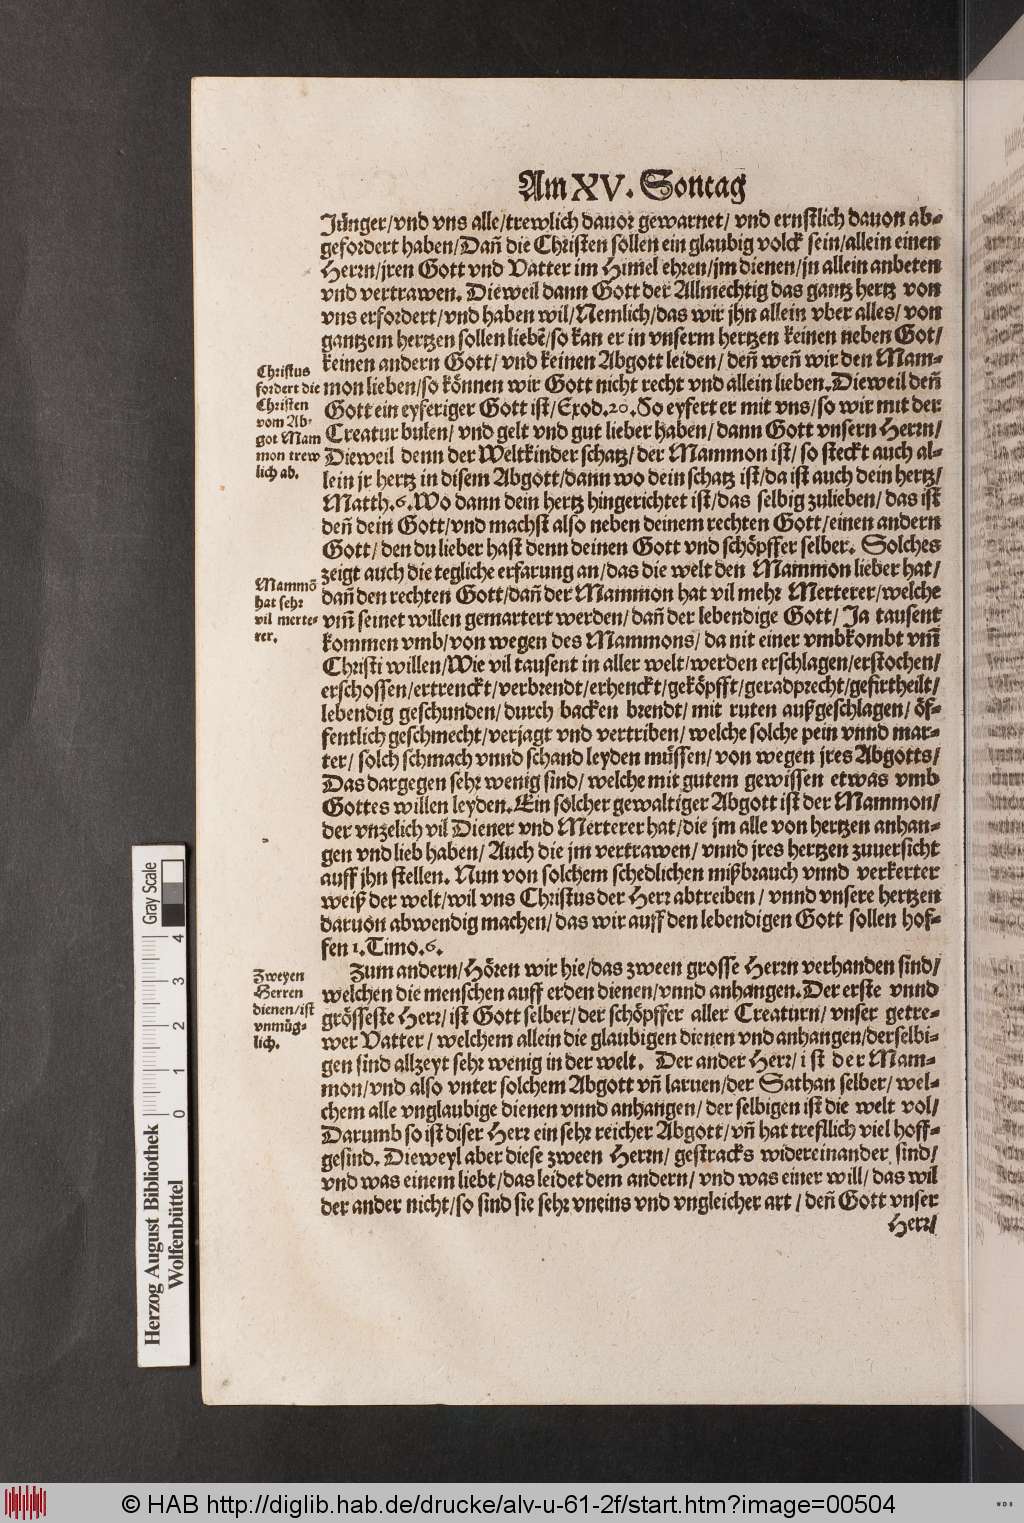 Am XV. Sontag
Jünger/vnd vns alle/trewlich dauor gewarnet/ vnd ernstlich dauon ab-
gefordert haben/Dañ die Christen sollen ein glaubig volck sein/allein einen
Herrn/jren Gott vnd Vatter im Himel ehren/jm dienen/jn allein anbeten
vnd vertrawen. Dieweil dann Gott der Allmechtig das gantz hertz von
vns erfordert/vnd haben wil/Nemlich/das wir jhn allein vber alles/von
gantzem hertzen sollen liebẽ/so kan er in vnserm hertzen keinen neben Got/
keinen andern Gott/ vnd keinen Abgott leiden/ deñ weñ wir den Mam-
mon lieben/so können wir Gott nicht recht vnd allein lieben. Dieweil deñ
Gott ein eyferiger Gott ist/Exod.20.So eyfert er mit vns/so wir mit der
Creatur bulen/ vnd gelt vnd gut lieber haben/ dann Gott vnsern Herrn/
Dieweil denn der Weltkinder schatz/ der Mammon ist/ so steckt auch al-
lein jr hertz in disem Abgott/dann wo dein schatz ist/da ist auch dein hertz/
Matth.6.Wo dann dein hertz hingerichtet ist/das selbig zulieben/ das ist
deñ dein Gott/vnd machst also neben deinem rechten Gott/einen andern
Gott/ den du lieber hast denn deinen Gott vnd schöpffer selber. Solches
zeigt auch die tegliche erfarung an/das die welt den Mammon lieber hat/
dañ den rechten Gott/dañ der Mammon hat vil mehr Merterer/welche
vm̃ seinet willen gemartert werden/ dañ der lebendige Gott/ Ja tausent
kommen vmb/von wegen des Mammons/ da nit einer vmbkombt vm̃
Christi willen/Wie vil tausent in aller welt/werden erschlagen/erstochen/
erschossen/ertrenckt/verbrendt/erhenckt/geköpfft/geradprecht/gefirtheilt/
lebendig geschunden/durch backen brendt/ mit ruten außgeschlagen/ öf-
fentlich geschmecht/verjagt vnd vertriben/ welche solche pein vnnd mar-
ter/ solch schmach vnnd schand leyden müssen/ von wegen jres Abgotts/
Das dargegen sehr wenig sind/ welche mit gutem gewissen etwas vmb
Gottes willen leyden. Ein solcher gewaltiger Abgott ist der Mammon/
der vnzelich vil Diener vnd Merterer hat/die jm alle von hertzen anhan-
gen vnd lieb haben/ Auch die jm vertrawen/ vnnd jres hertzen zuuersicht
auff jhn stellen. Nun von solchem schedlichen mißbrauch vnnd verkerter
weiß der welt/wil vns Christus der Herr abtreiben/ vnnd vnsere hertzen
daruon abwendig machen/das wir auff den lebendigen Gott sollen hof-
fen 1.Timo.6.
Zum andern/Hören wir hie/das zween grosse Herrn verhanden sind/
welchen die menschen auff erden dienen/vnnd anhangen. Der erste vnnd
grösseste Herr/ ist Gott selber/der schöpffer aller Creaturn/ vnser getre-
wer Vatter/ welchem allein die glaubigen dienen vnd anhangen/derselbi-
gen sind allzeyt sehr wenig in der welt. Der ander Herr/ ist der Mam-
mon/vnd also vnter solchem Abgott vñ laruen/der Sathan selber/ wel-
chem alle vnglaubige dienen vnnd anhangen/ der selbigen ist die welt vol/
Darumb so ist diser Herr ein sehr reicher Abgott/vñ hat trefflich viel hoff-
gesind. Dieweyl aber diese zween Herrn/ gestracks widereinander sind/
vnd was einem liebt/das leidet dem andern/ vnd was einer will/ das wil
der ander nicht/so sind sie sehr vneins vnd vngleicher art/ deñ Gott vnser
Herr/
Christus
fordert die
Christen
vom Ab-
got Mam
mon trew
lich ab.
Mammõ
hat sehr
vil merte-
rer.
Zweyen
Herren
dienen/ist
vnmüg-
lich.
Gray Scale
0 1 2 3 4
Herzog August Bibliothek
Wolfenbüttel
© HAB http://diglib.hab.de/drucke/alv-u-61-2f/start.htm?image=00504